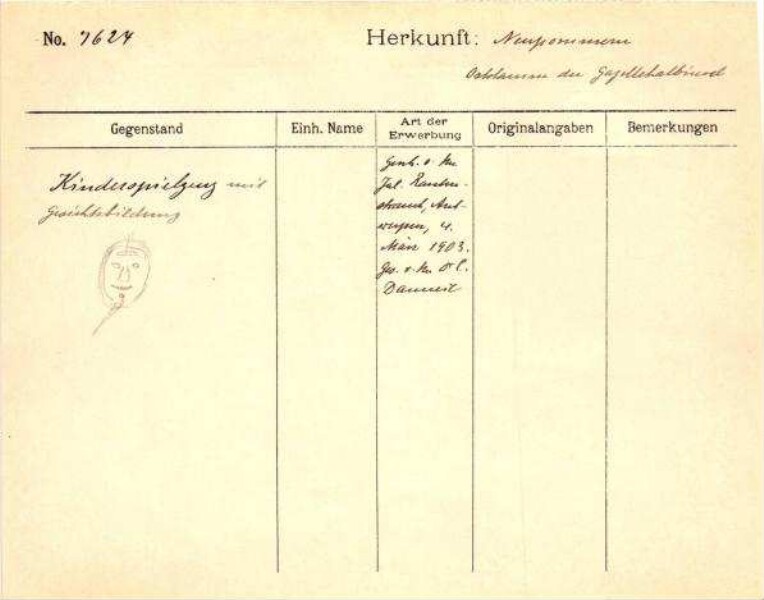 No. 7624
Herkunft: Neupommern
der Gazellehalbinsel
Gegenstand
Einh. Name
Art der
Erwerbung
Originalangaben
Bemerkungen
Kinderspielzeug mit
Gesichtsbildung
Gesch. v. Hn
Jul. Rauten-
strauch, Ant-
werpen, 4.
März 1903.
Ges. v. Hn